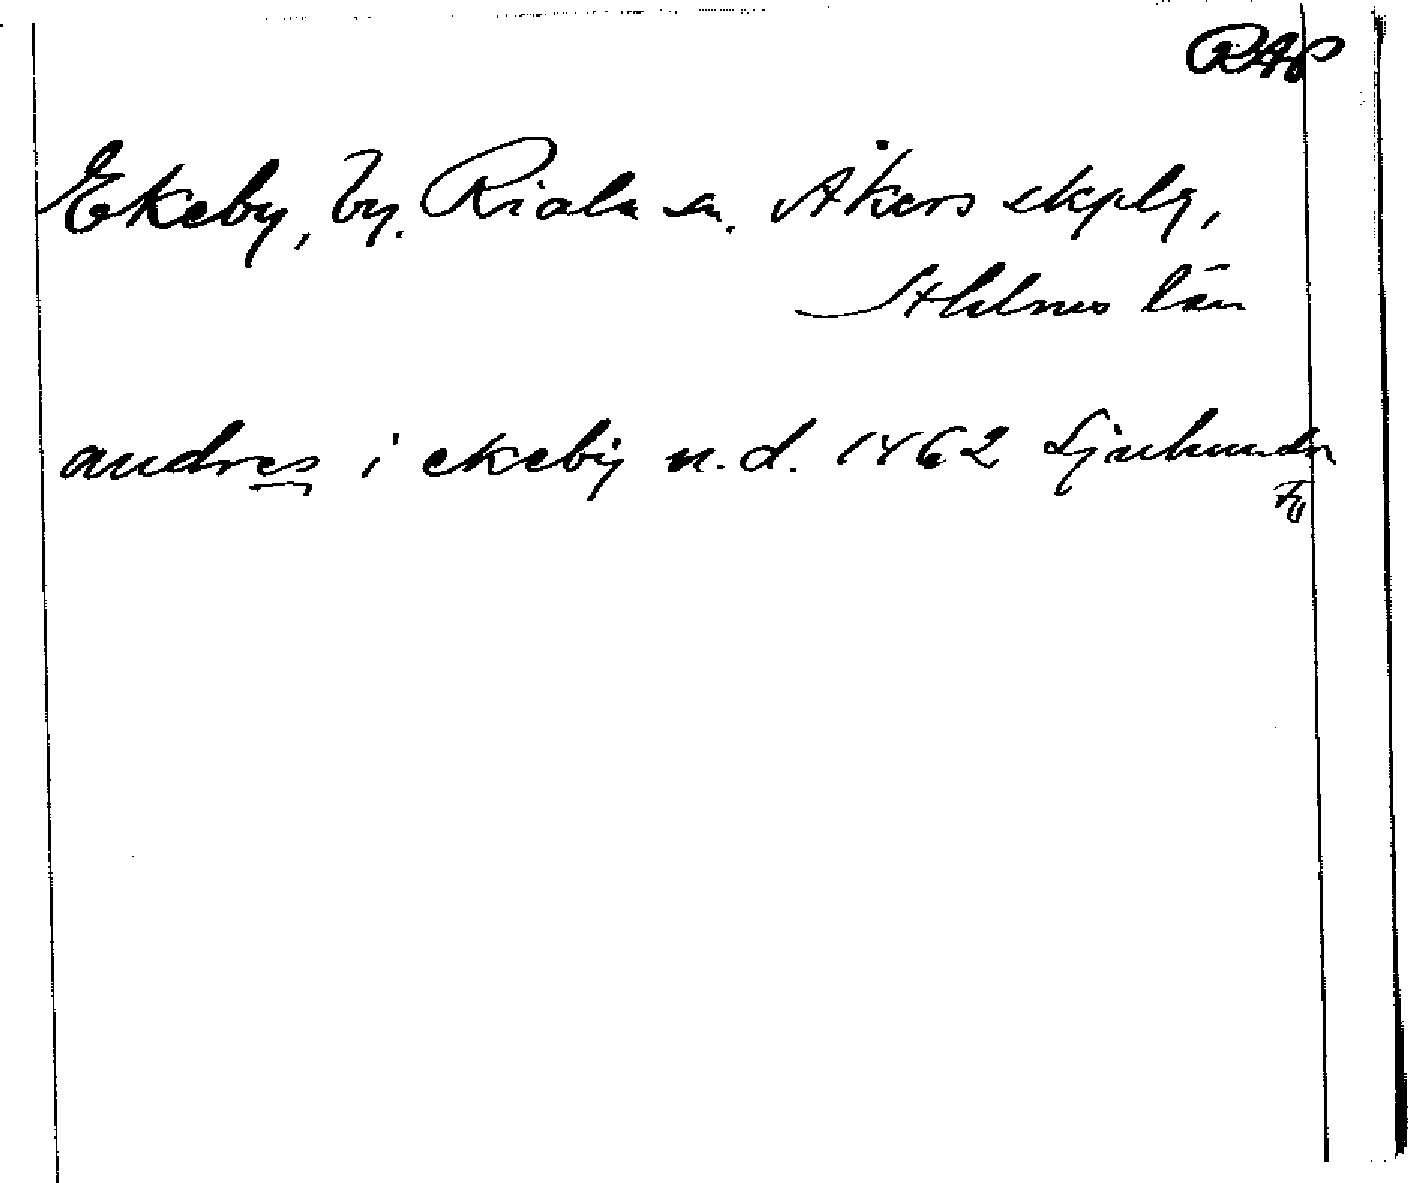 RAP
Ekeby, by. Riala sn. Åkers skplg,
Sthlms län
andres i ekeby n.d. 1462 Sjuhundra